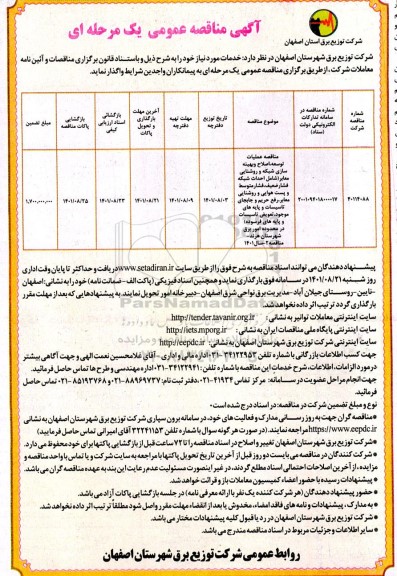 آگهی مناقصه عمومی یک مرحله ای
شرکت توزیع برق استان اصفهان
شرکت توزیع برق شهرستان اصفهان در نظر دارد: خدمات مورد نیاز خود را به شرح ذیل و باستناد قانون برگزاری مناقصات و آئین نامه
معاملات شرکت، از طریق برگزاری مناقصه عمومی یک مرحله ای به پیمانکاران واجدین شرایط واگذار نماید.
شماره مناقصه شرکت
شماره مناقصه در سامانه تدارکات الکترونیکی دولت (ستاد)
موضوع مناقصه
تاریخ توزیع دفترچه
مهلت تهیه دفترچه
آخرین مهلت بارگذاری و تحویل پاکات
بازگشائی اسناد ارزیابی کیفی
بازگشایی پاکات مناقصه
مبلغ تضمین
۴۰۱۴۰۸۸
۲۰۰۱۰۹۴۰۱۸۰۰۰۰۱۷
مناقصه عملیات
توسعه، اصلاح و بهینه
سازی شبکه و روشنایی
معابر (شامل احداث شبکه
فشار ضعیف، فشار متوسط
و پست هوایی و روشنایی
معابر، رفع حریم و جابجای
تاسیسات و پایه های
موجود، تعویض تاسیسات
و پایه های فرسوده)
در محدوده امور برق
شهرستان هرند-
مناقصه ۲-سال ۱۴۰۱
۱۴۰۱/۰۸/۰۳
۱۴۰۱/۰۸/۰۹
۱۴۰۱/۰۸/۲۱
۱۴۰۱/۰۸/۲۳
۱۴۰۱/۰۸/۲۵
۱,۷۰۰,۰۰۰,۰۰۰
پیشنهاد دهندگان می توانند اسناد مناقصه به شرح فوق را از طریق سایت www.setadiran.ir دریافت و حداکثر تا پایان وقت اداری
روز شنبه ۱۴۰۱/۰۸/۲۱ در سامانه فوق بارگذاری نماید و همچنین اسناد فیزیکی (پاکت الف - ضمانت نامه) خود را به نشانی: اصفهان
-نایین- روستای جیلان آباد -مدیریت برق نواحی شرق اصفهان -دبیرخانه امور تحویل نمایند. به پیشنهادهایی که بعد از مهلت مقرر
بارگذاری گردد ترتیب اثر داده نخواهد شد.
سایت اینترنتی معاملات توانیر به نشانی : http://tender.tavanir.org.ir
سایت اینترنتی پایگاه ملی مناقصات ایران به نشانی : http://iets.mporg.ir
سایت اینترنتی شرکت توزیع برق شهرستان اصفهان به نشانی: http://eepdc.ir
جهت کسب اطلاعات بازرگانی با شماره تلفن ۳۴۱۲۲۹۵۳-۰۳۱ -اداره مالی و اداری - آقای غلامحسین نعمت الهی و جهت آگاهی بیشتر
در مورد الزامات، اطلاعات، شرح خدمات این مناقصه با شماره تلفن: ۳۴۱۲۲۹۴۱-۰۳۱ اداره مهندسی و طرح ها تماس حاصل فرمائید.
جهت انجام مراحل عضویت در سامانه: مرکز تماس ۴۱۹۳۴-۰۲۱، دفتر ثبت نام: ۸۸۹۶۹۷۳۷-۰۲۱ و ۸۵۱۹۳۷۶۸-۰۲۱ تماس حاصل
فرمائید.
نوع و مبلغ تضمین شرکت در مناقصه: در اسناد درج شده است
مناقصه گران جهت به روز رسانی مدارک و فعالیت های خود، در سامانه برون سپاری شرکت توزیع برق شهرستان اصفهان به نشانی
https://www.eepdc.ir مراجعه نمایند. (در صورت هر گونه سوال با شماره تلفن ۳۲۲۴۱۱۵۳ آقای امیرانی تماس حاصل فرمایید)
شرکت توزیع برق شهرستان اصفهان تغییر و اصلاح در اسناد مناقصه را تا ۷۲ ساعت قبل از بازگشایی پاکتها برای خود محفوظ می دارد.
شرکت کنندگان در مناقصه می بایست دو روز قبل از آخرین تاریخ تحویل پاکتها با مراجعه به سایت شرکت و یا تماس با واحد مناقصه و
مزایده، از آخرین اصلاحات احتمالی اسناد مطلع گردند، در غیر اینصورت مسئولیت عدم رعایت این بند به عهده مناقصه گران می باشد.
پیشنهادات رسیده با حضور اعضاء کمیسیون معاملات باز و قرائت خواهد شد.
حضور پیشنهاد دهندگان (هر شرکت کننده یک نفر با ارائه معرفی نامه) در جلسه بازگشایی پاکات آزاد می باشد.
به مدارک، پیشنهادات و نامه های فاقد امضاء، مخدوش یا بعد از انقضاء مهلت مقرر واصل شود مطلقاً ترتیب اثر داده نخواهد شد.
شرکت توزیع برق شهرستان اصفهان در رد یا قبول کلیه پیشنهادات مختار می باشد.
سایر اطلاعات و جزئیات مربوط در اسناد مناقصه مندرج می باشد.
روابط عمومی شرکت توزیع برق شهرستان اصفهان